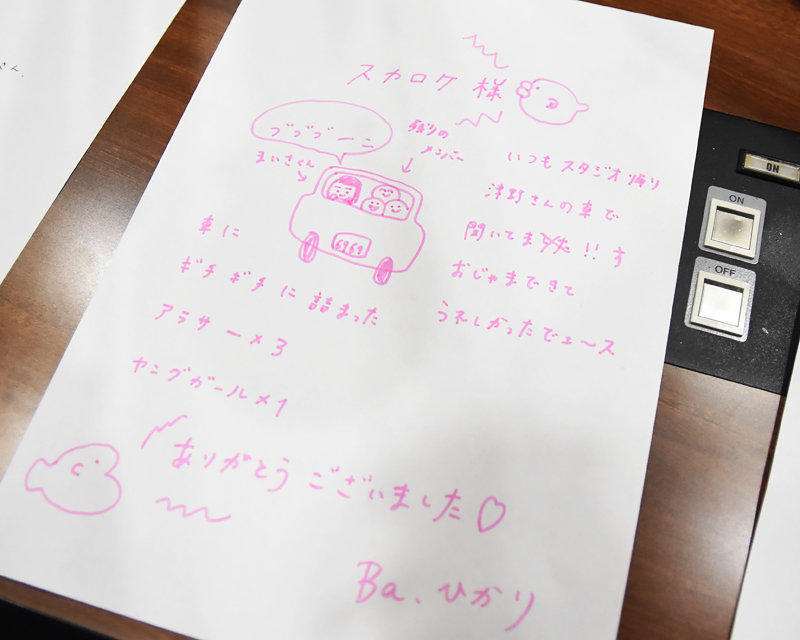 さん.
スカロケ 様
ブブブーン
まいさくん
残りの
メンバー
6969
いつも スタジオ帰り
津野さんの車で
聞いてました!!す
おじゃまできて
うれしかったでェ〜ス
車に
ギチギチに詰まった
アラサー×3
ヤングガール×1
ありがとうございました♡
Ba. ひかり
ON
ON
OFF